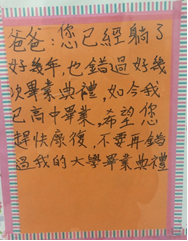 爸爸:您已經躺了
好幾年,也錯過好幾
次畢業典禮,如今我
已高中畢業,希望您
趕快康復,不要再錯
過我的大學畢業典禮